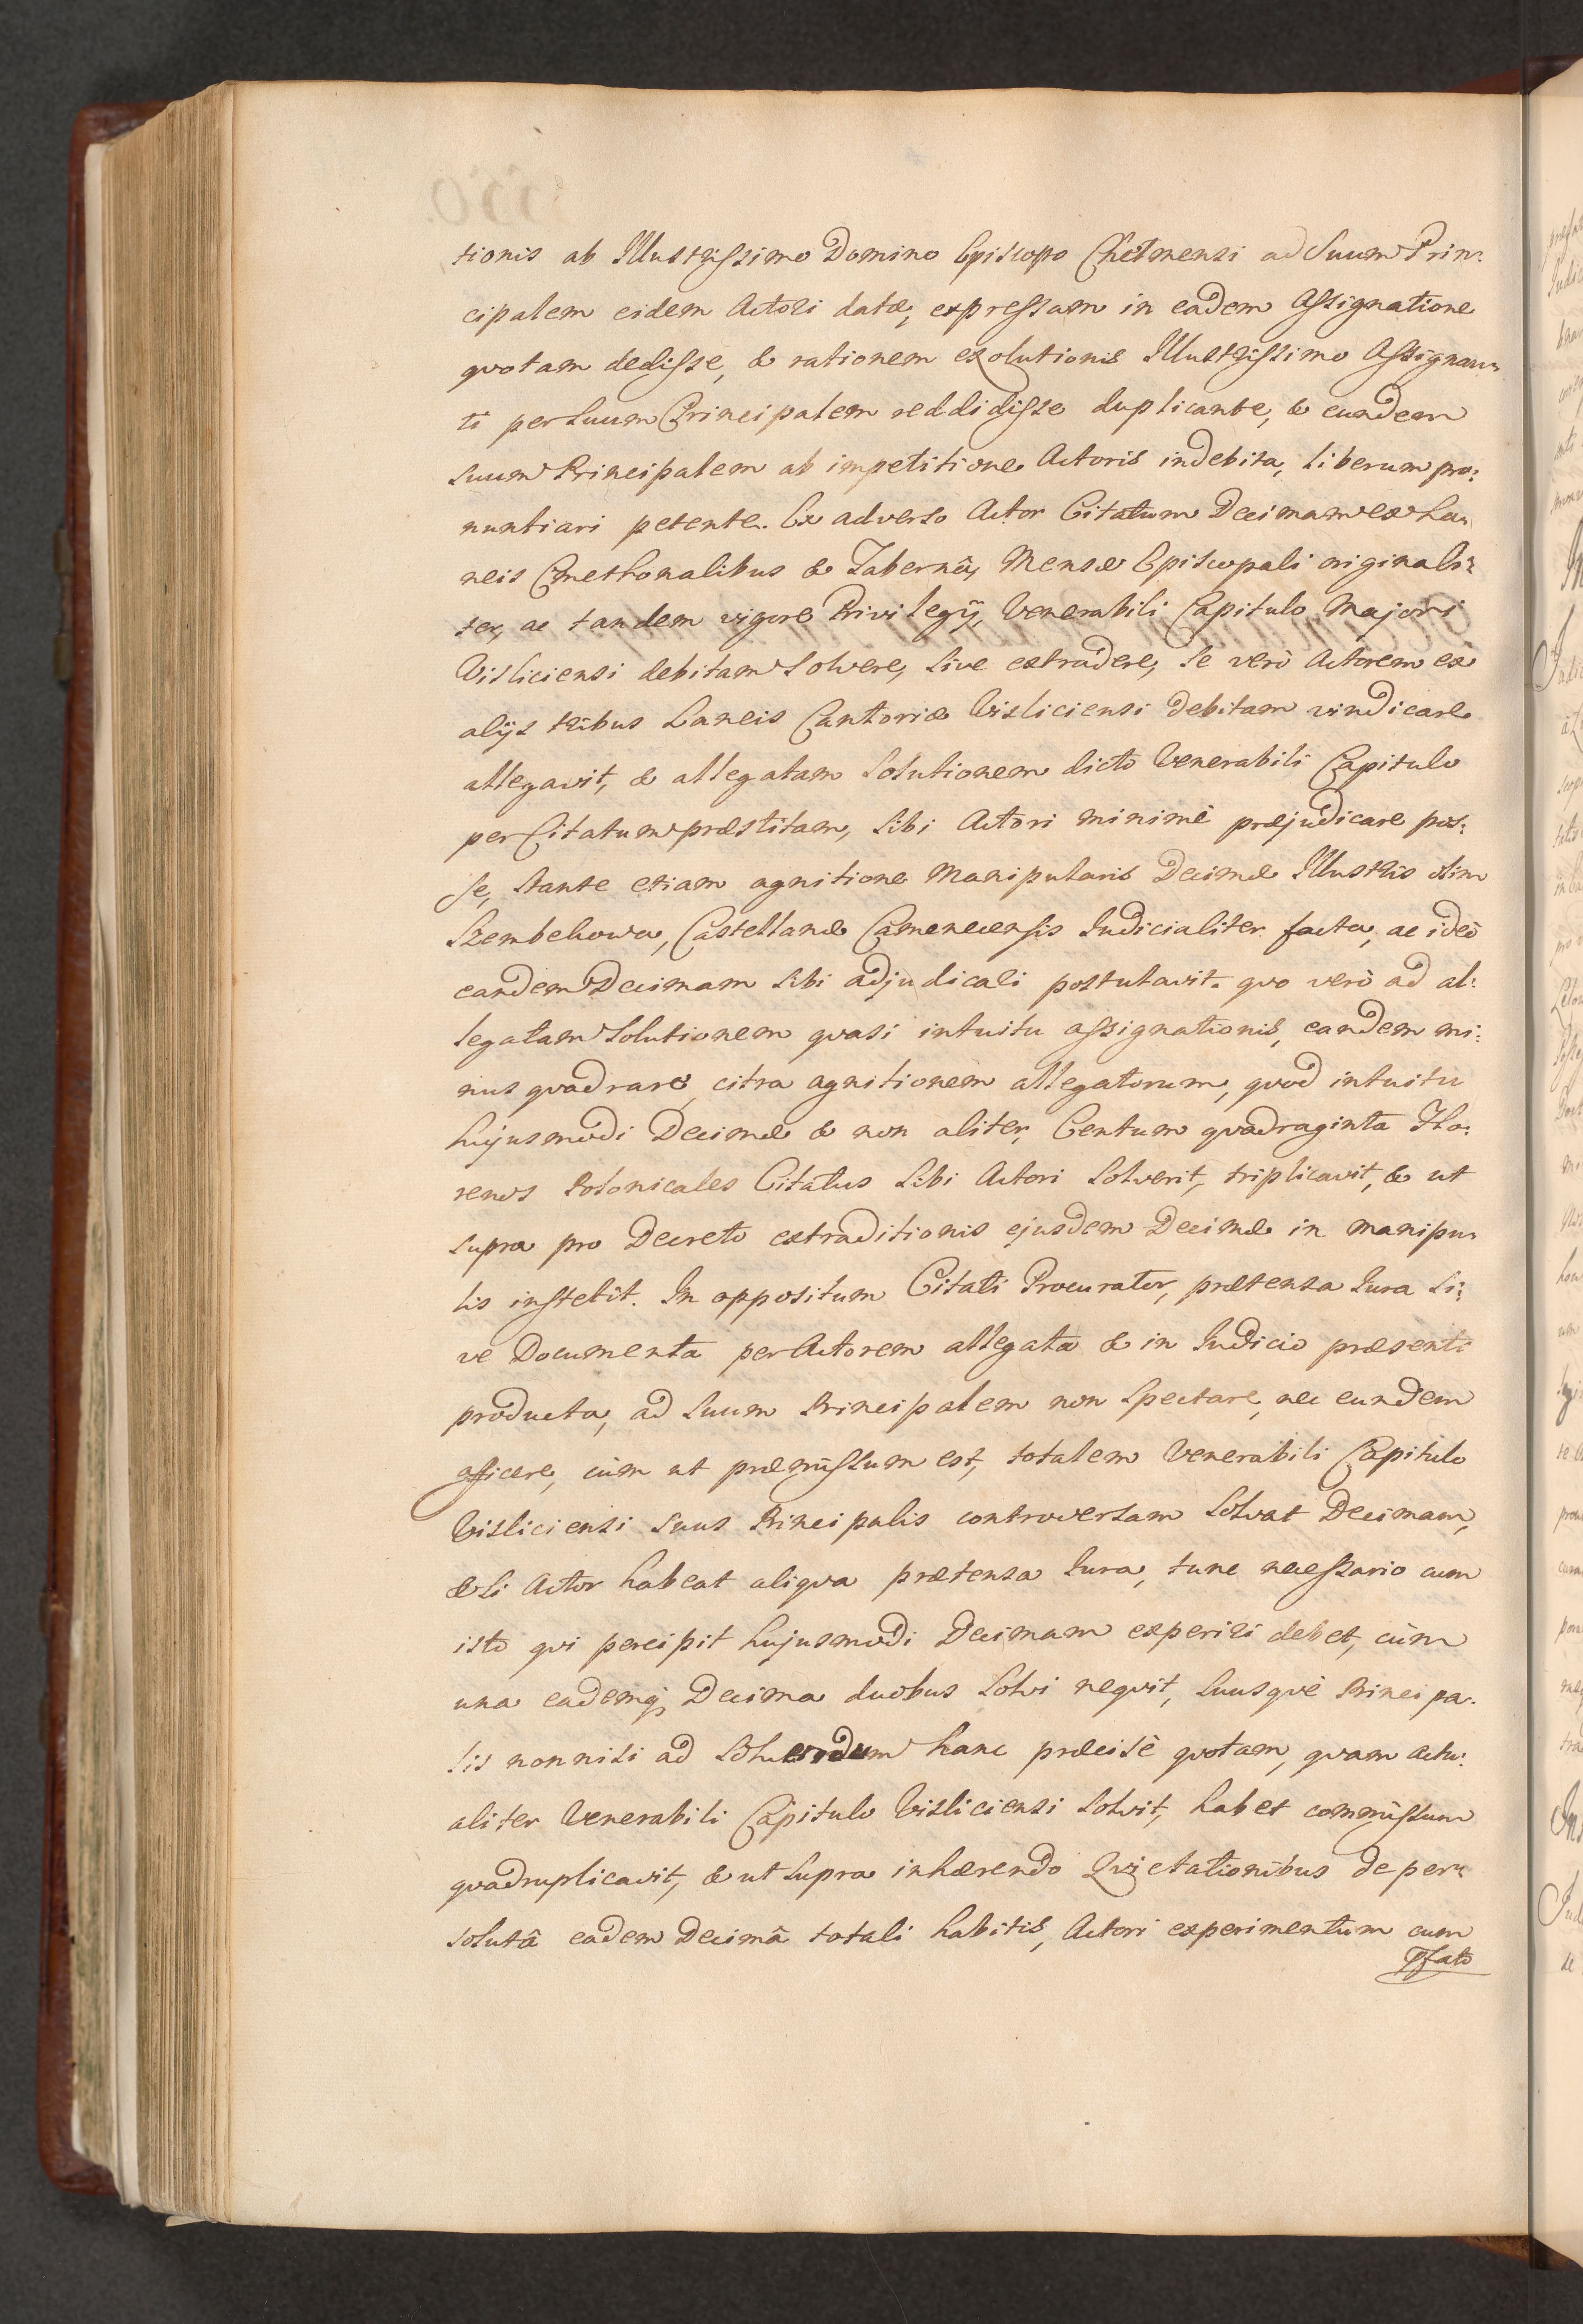 tionis ab Illustrissimo Domino Episcopo Chelmensi ad Suum Prin:
cipalem eidem Actori datæ, expressam in eadem Assignatione
quotam dedisse, & rationem exolutionis Illustrissimo Assignan:
ti per Suum Principalem reddidisse duplicante, & eundem
Suum Principalem ab impetitione Actoris indebita, liberum pro:
nuntiari petente. Ex adverso Actor Citatum Decimam ex La:
neis Cmethonalibus & Tabernâ, Mensæ Episcopali originali:
ter, ac tandem vigore Privilegij, Venerabili Capitulo Majori
Visliciensi debitam Solvere, Sive extradere, Se verò Actorem ex
alijs tribus Laneis Cantoriæ Visliciensi debitam vindicare
allegavit, & allegatam Solutionem dicto Venerabili Capitulo
per Citatum præstitam, Sibi Actori minimè præjudicare pos:
se, Stante etiam agnitione Manipularis Decimæ Illustris olim
Szembekowa, Castellanæ Camenecensis Judicialiter facta, ac ideò
eandem Decimam Sibi adjudicari postulavit. quo verò ad al:
legatam Solutionem quasi intuitu assignationis, eandem mi:
nus quadrare, citra agnitionem allegatorum, quod intuitu
hujusmodi Decimæ & non aliter, Centum quadraginta Flo:
renos Polonicales Citatus Sibi Actori Solverit, triplicavit, & ut
supra pro Decreto extraditionis ejusdem Decimæ in manipu:
lis institit. In oppositum Citati Procurator, prætensa Jura Si:
ve Documenta per Actorem allegata & in Judicio præsenti
producta, ad Suum Principalem non Spectare, nec eundem
afficere, cùm ut præmissum est, totalem Venerabili Capitulo
Visliciensi Suus Principalis controversam Solvat Decimam,
& Si Actor habeat aliqva prætensa Jura, tunc necessario cum
isto qvi percipit hujusmodi Decimam experiri debet, cùm
una eademq; Decima duobus Solvi neqvit, Suusqvè Principa:
lis nonnisi ad Solvendum hanc præcisè qvotam, qvam actu:
aliter Venerabili Capitulo Visliciensi Solvit, habet commissum
qvadruplicavit, & ut Supra inhærendo Qvietationibus de per:
solutâ eadem Decimâ totali habitis, Actori experimentum cum
Pfato